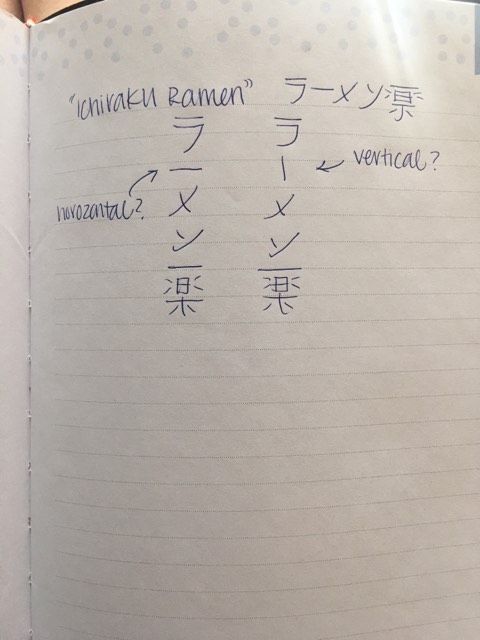 "Ichiraku Ramen" ラーメン一楽
ラーメン一楽
horozontal?
ラーメン一楽
vertical?